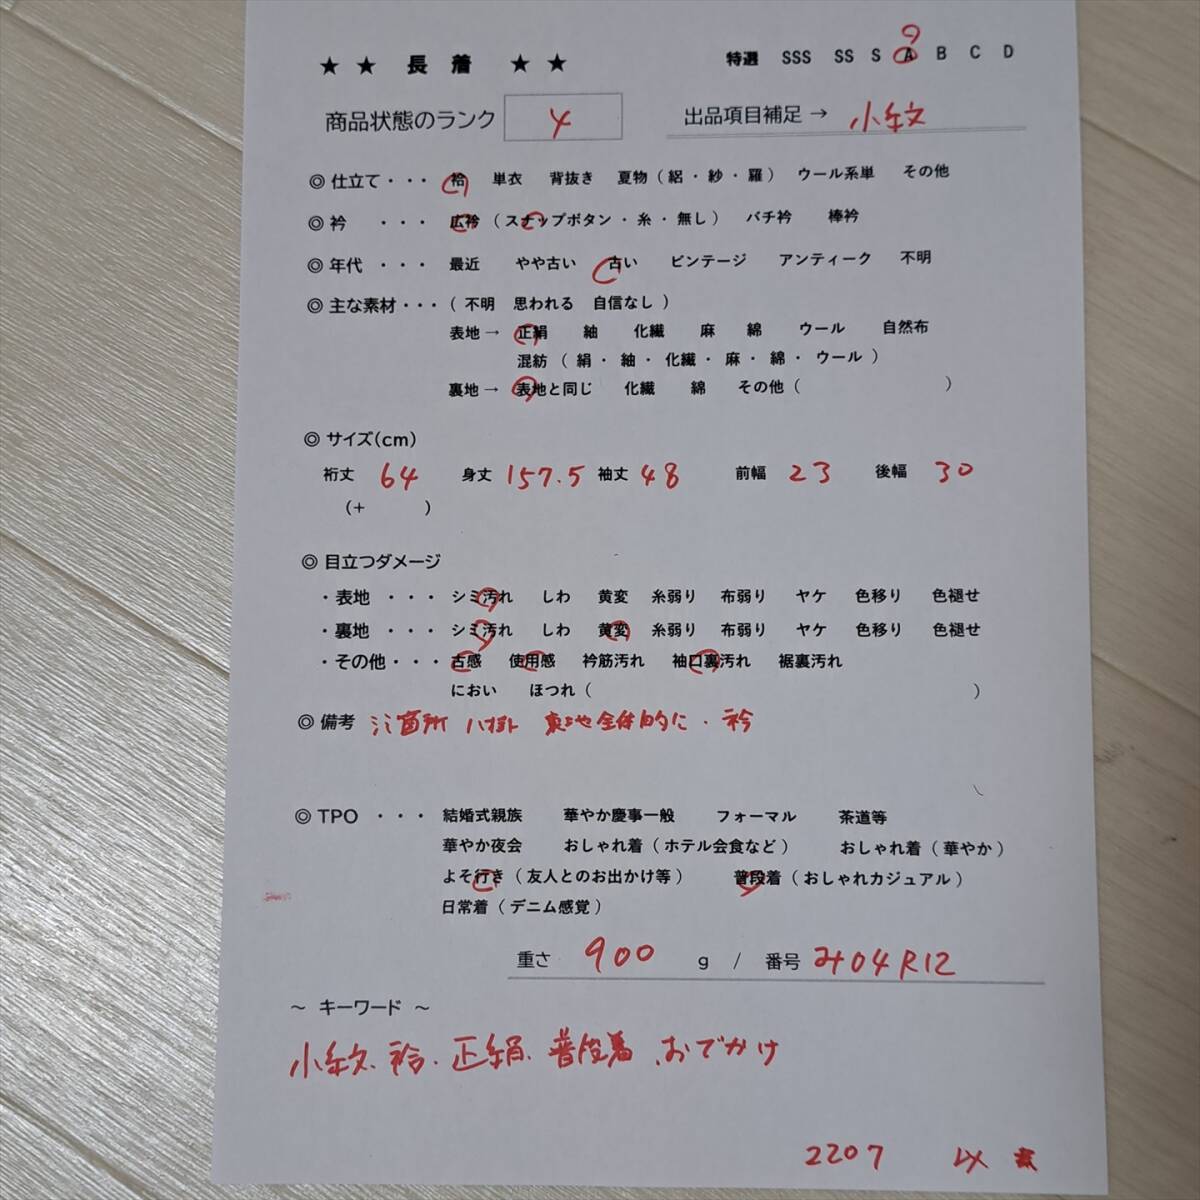 ★ ★ 長 着 ★ ★ 特選 SSS SS S A B C D
商品状態のランク 4 出品項目補足 → 小紋
◎ 仕立て・・・ 袷 単衣 背抜き 夏物(絽・紗・羅) ウール系単 その他
◎ 衿 ・・・ 広衿 (スナップボタン・糸・無し) バチ衿 棒衿
◎ 年代 ・・・ 最近 やや古い 古い ビンテージ アンティーク 不明
◎ 主な素材・・・( 不明 思われる 自信なし )
表地→ 正絹 紬 化繊 麻 綿 ウール 自然布
混紡 ( 絹・紬・化繊・麻・綿・ウール )
裏地→ 表地と同じ 化繊 綿 その他( )
◎ サイズ(cm)
裄丈 64 身丈 157.5 袖丈 48 前幅 23 後幅 30
(+ )
◎ 目立つダメージ
・表地 ・・・ シミ汚れ しわ 黄変 糸弱り 布弱り ヤケ 色移り 色褪せ
・裏地 ・・・ シミ汚れ しわ 黄変 糸弱り 布弱り ヤケ 色移り 色褪せ
・その他・・・ 古感 使用感 衿筋汚れ 袖口裏汚れ 裾裏汚れ
におい ほつれ( )
◎ 備考 箇所 八掛 全体的に・衿
◎ TPO ・・・ 結婚式親族 華やか慶事一般 フォーマル 茶道等
華やか夜会 おしゃれ着(ホテル会食など) おしゃれ着(華やか)
よそ行き(友人とのお出かけ等) 普段着(おしゃれカジュアル)
日常着(デニム感覚)
重さ 900 g / 番号 み04R12
~ キーワード ~
小紋・袷・正絹・普段着・おでかけ
2207